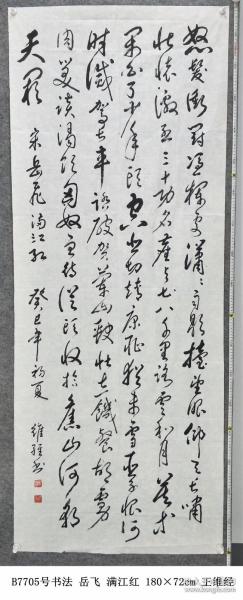 怒发冲冠凭栏处潇潇雨歇抬望眼仰天长啸
壮怀激烈三十功名尘与土八千里路云和月莫等
闲白了少年头空悲切靖康耻犹未雪臣子恨何
时灭驾长车踏破贺兰山缺壮志饥餐胡虏
肉笑谈渴饮匈奴血待从头收拾旧山河朝
天阙
宋岳飞满江红
癸巳年初夏
维经书
B7705号书法 岳飞 满江红 180×72cm 王维经